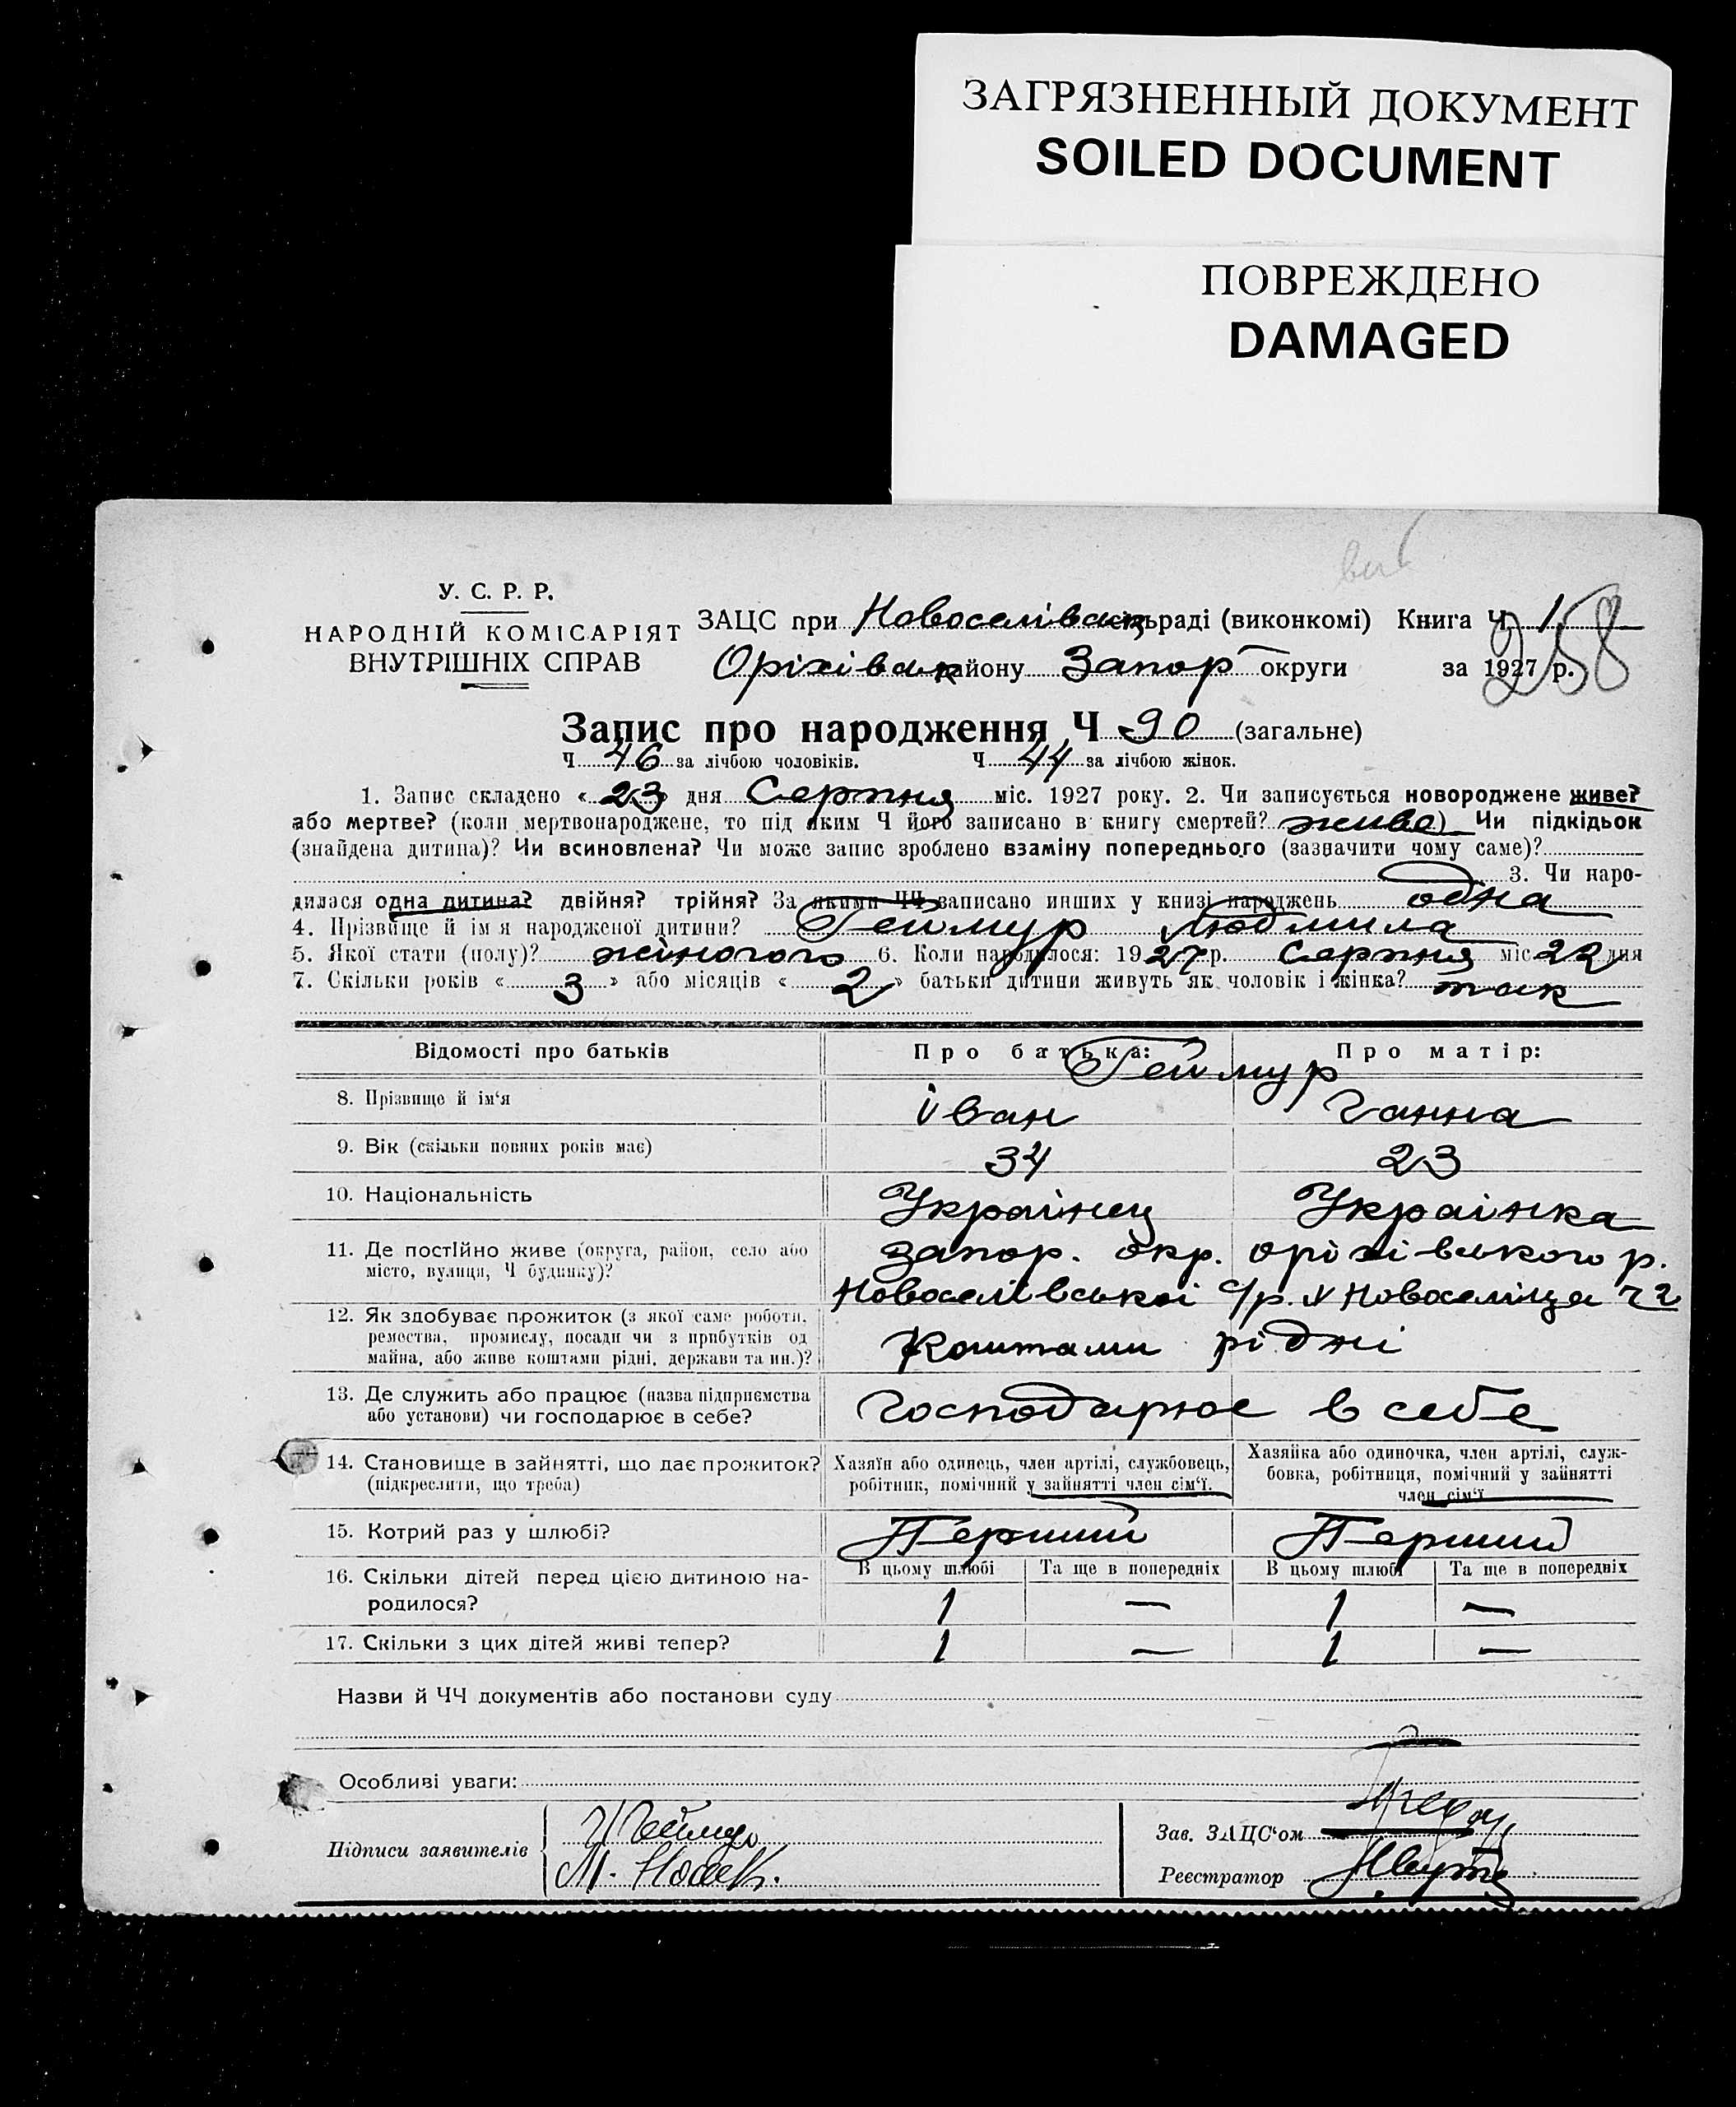 ЗАГРЯЗНЕННЫЙ ДОКУМЕНТ
SOILED DOCUMENT
ПОВРЕЖДЕНО
DAMAGED
У. С. Р. Р.
НАРОДНІЙ КОМІСАРІЯТ
ВНУТРІШНІХ СПРАВ
ЗАЦС при Новоселівськ сільраді (виконкомі) Книга Ч 1
258
Оріхівськ району Запор округи за 1927 р.
Запис про народження Ч 90 (загальне)
Ч 46 за лічбою чоловіків. Ч 44 за лічбою жінок.
1. Запис складено «23» дня Серпня міс. 1927 року. 2. Чи записується новороджене живе?
або мертве? (коли мертвонароджене, то під яким Ч його записано в книгу смертей? живе) Чи підкідьок
(знайдена дитина)? Чи всиновлена? Чи може запис зроблено взаміну попереднього (зазначити чому саме)?
3. Чи наро-
дилася одна дитина? двійня? трійня? За якими ЧЧ записано инших у книзі народжень одна
4. Прізвище й ім'я народженої дитини? Геймур Людмила
5. Якої стати (полу)? жіночого 6. Коли народилося: 1927 р. Серпня міс 22 дня
7. Скільки років «3» або місяців «2» батьки дитини живуть як чоловік і жінка? так
Відомості про батьків Про батька: Про матір:
Геймур
8. Прізвище й ім'я Іван Ганна
9. Вік (скільки повних років має) 34 23
10. Національність Українец Українка
11. Де постійно живе (округа, район, село або Запор. окр. оріхівського р.
місто, вулиця, Ч будинку)? Новоселівської с/р. Новоселиця
12. Як здобуває прожиток (з якої саме роботи,
ремества, промислу, посади чи з прибутків од Коштами рідні
майна, або живе коштами рідні, держави та ин.)?
13. Де служить або працює (назва підприємства Господарює в себе
або установи) чи господарює в себе?
14. Становище в зайнятті, що дає прожиток? Хазяїн або одинець, член артілі, службовець, Хазяйка або одиночка, член артілі, служ-
(підкреслити, що треба) робітник, помічний у зайнятті член сім'ї. бовка, робітниця, помічний у зайнятті
член сім'ї
15. Котрий раз у шлюбі? Перший Перший
16. Скільки дітей перед цією дитиною на- В цьому шлюбі Та ще в попередніх В цьому шлюбі Та ще в попередніх
родилося? 1 — 1 —
17. Скільки з цих дітей живі тепер? 1 — 1 —
Назви й ЧЧ документів або постанови суду
Особливі уваги:
Підписи заявителів
Зав. ЗАЦС'ом
Реєстратор